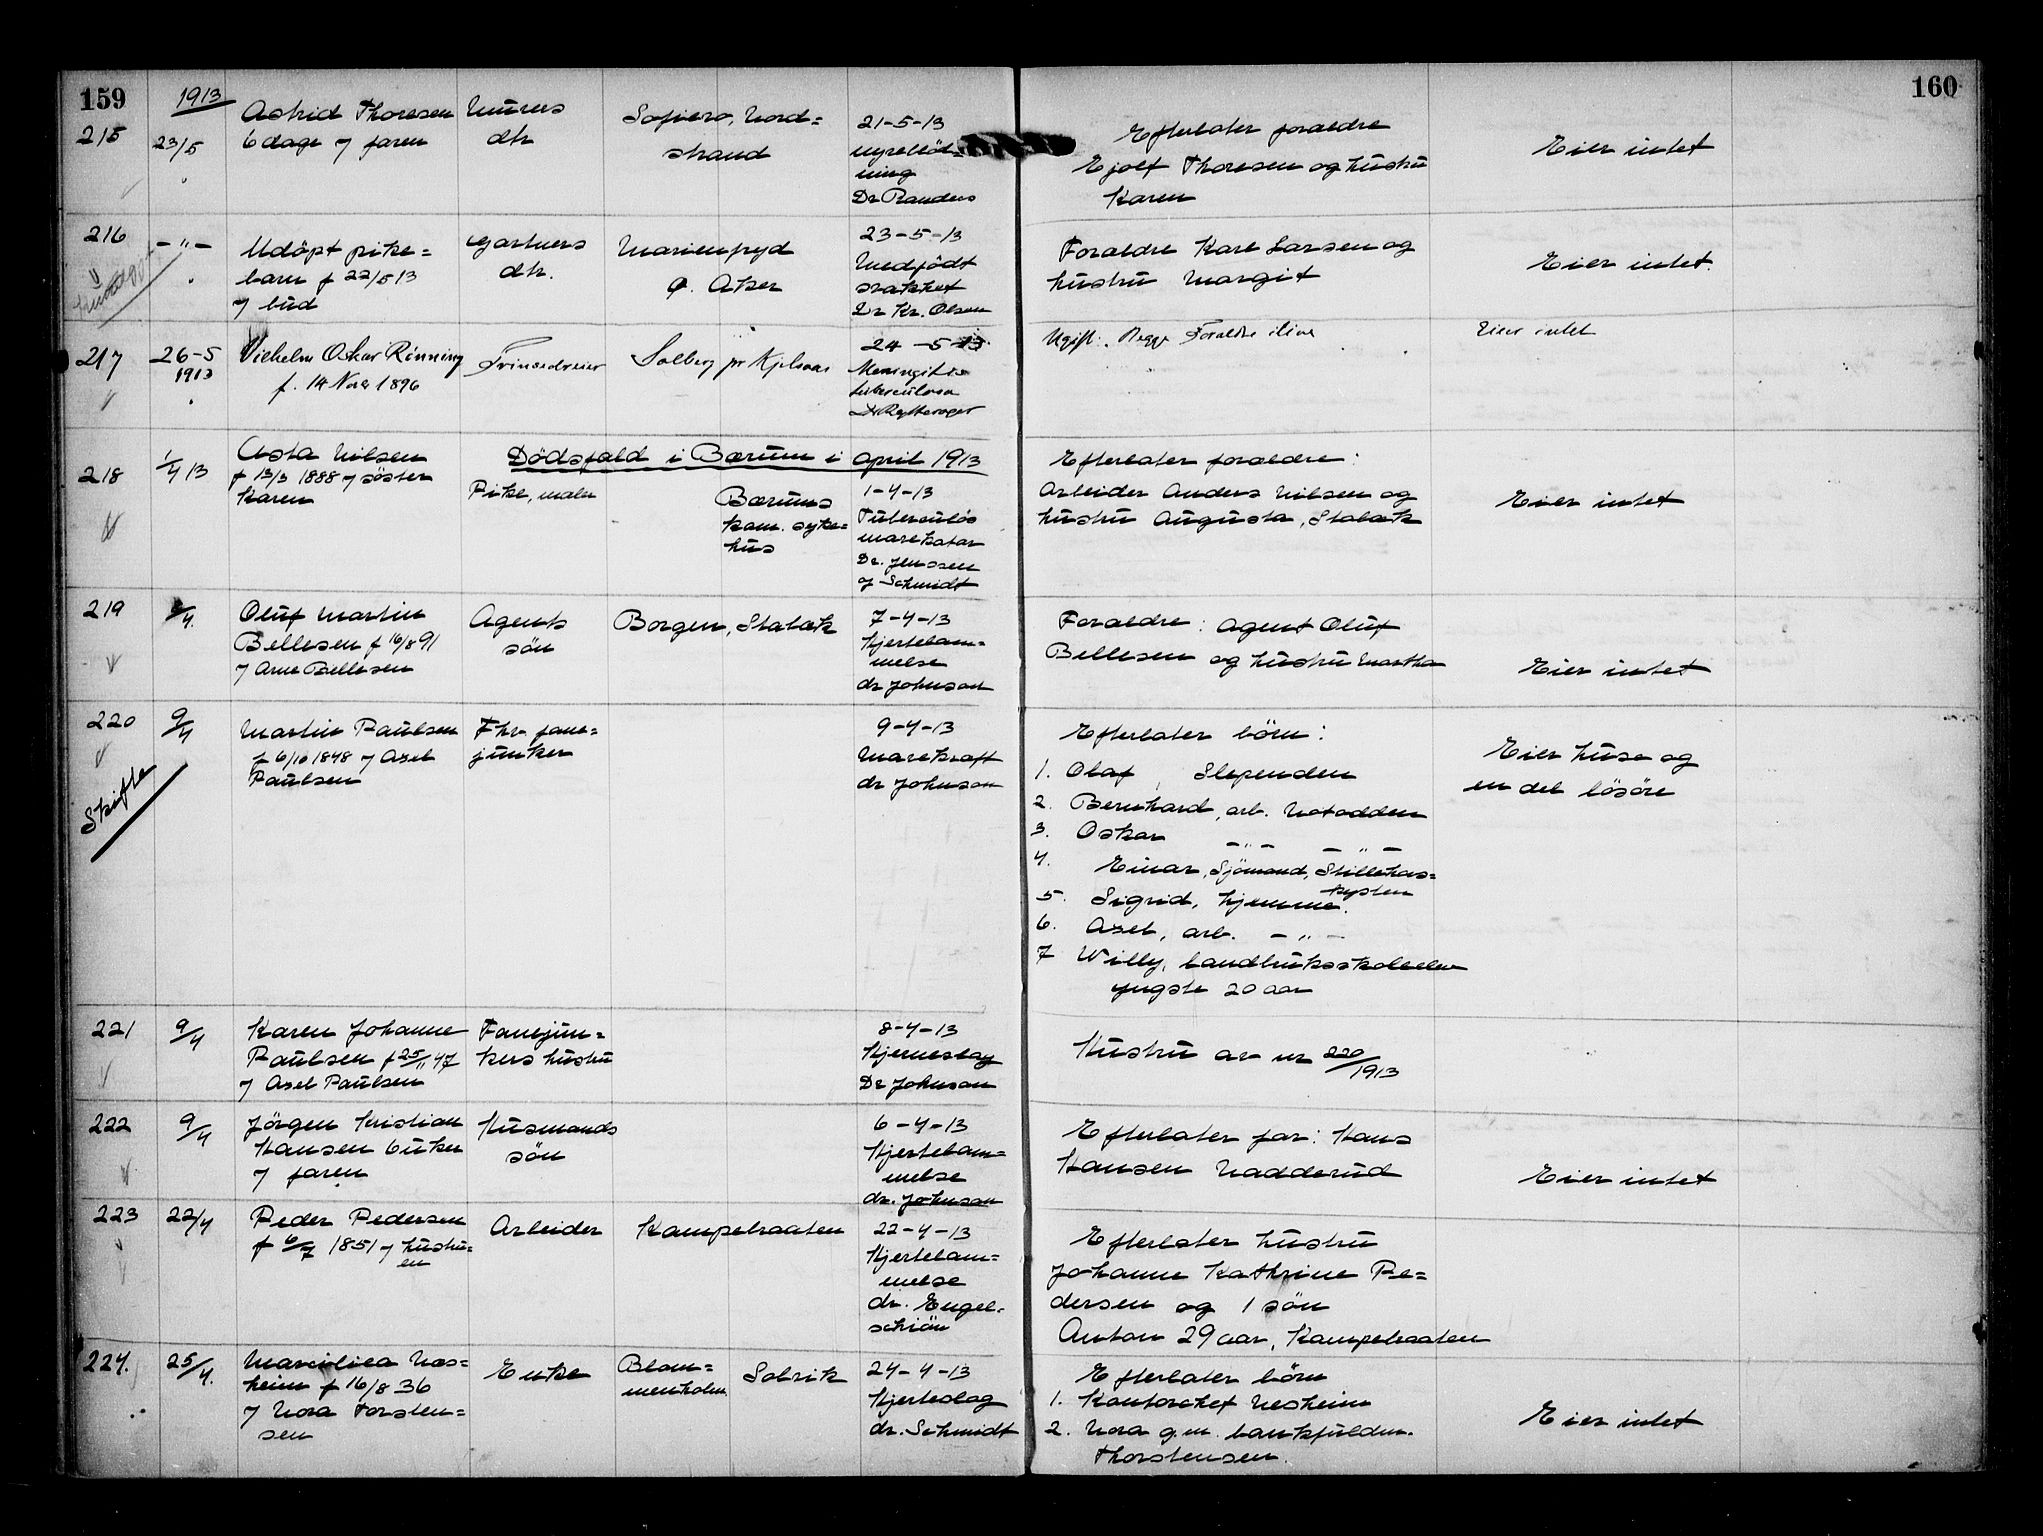 159
160
1913
215
23/5
Astrid Thoresen
6 dage j faren
Murers
dtr
Sofiero, Nord=
strand
21-5-13
ning
Dr Randers
Efterlater forældre
Ejolf Thoresen og hustru
Karen
Eier intet
216
-"-
Udöpt pike=
barn f 22/5 13
j bud
Gartners
dtr.
Marienfryd
Ø. Aker
23-5-13
Medfödt
svakhet
Dr Kr. Olsen
Forældre Karl Larsen og
hustru Margit
Eier intet.
217
26-5
1913
Vilhelm Oskar Rönning
f. 14 Nov 1896
Solberg pr Kjelsaas
24-5-13
Meningitis
tuberculosa
Ugift. Begge Foraldre ilive
Eier intet
218
1/4 13
Asta Nilsen
f 13/3 1888 j söster
Karen
Dödsfald i Bærum i april 1913
Pike, maler
Bærums
kom. syke=
hus
1-4-13
Tuberculös
mavekatar
Dr. Jenssen
og Schmidt
Efterlater forældre:
Arbeider Anders Nilsen og
hustru Augusta, Stabæk
Eier intet
219
Oluf Martin
Bellesen f 16/8 91
j Arne Bellesen
Agents
sön
Borgen, Stabæk
7-4-13
Hjertelam=
melse
dr Johnson
Foraldre: Agent Oluf
Bellesen og hustru Martha
Eier intet
220
9/4
Skifte
Martin Paulsen
f 6/10 1848 j Axel
Paulsen
Fhv. fane=
junker
9-4-13
Mavekræft
dr Johnson
Efterlater börn:
1. Olaf, Slependen
2. Bernhard, arb. Notodden
3. Oskar -"- -"-
4. Einar, Sjömand, Stillehavs=
kysten
5. Sigrid, hjemme.
6. Axel, arb. -"-
7 Willy, landbruksskoleelev
yngste 20 aar
Eier huse og
en del lösöre
221
9/4
Karen Johanne
Paulsen f 25/11 47
j Axel Paulsen
Fanejun=
kers hustru
8-4-13
Hjerneslag
Dr Johnson
Hustru av nr 220/1913
222
9/4
Jörgen Kristian
Hansen 6 uker
j faren
Husmands
sön
6-4-13
Hjertelam=
melse
dr. Johnson
Efterlater far: Hans
Hansen Nadderud
Eier intet
223
22/4
Peder Pedersen
f 6/7 1851 j hustru=
en
Arbeider
Kampebraaten
22-4-13
Hjertelam=
melse
dr. Engel=
schiön
Efterlater hustru
Johanne Kathrine Pe=
dersen og 1 sön
Anton 29 aar, Kampebraaten
224.
25/4.
Næs=
heim f 16/8 36
j Nora Torsten=
sen
Enke
Blom=
menholm
Solvik
24-4-13
Hjerteslag
dr. Schmidt
Efterlater börn
1. Kontorchef Nesheim
2. Nora g.m. bankfuldm.
Thorstensen.
Eier intet